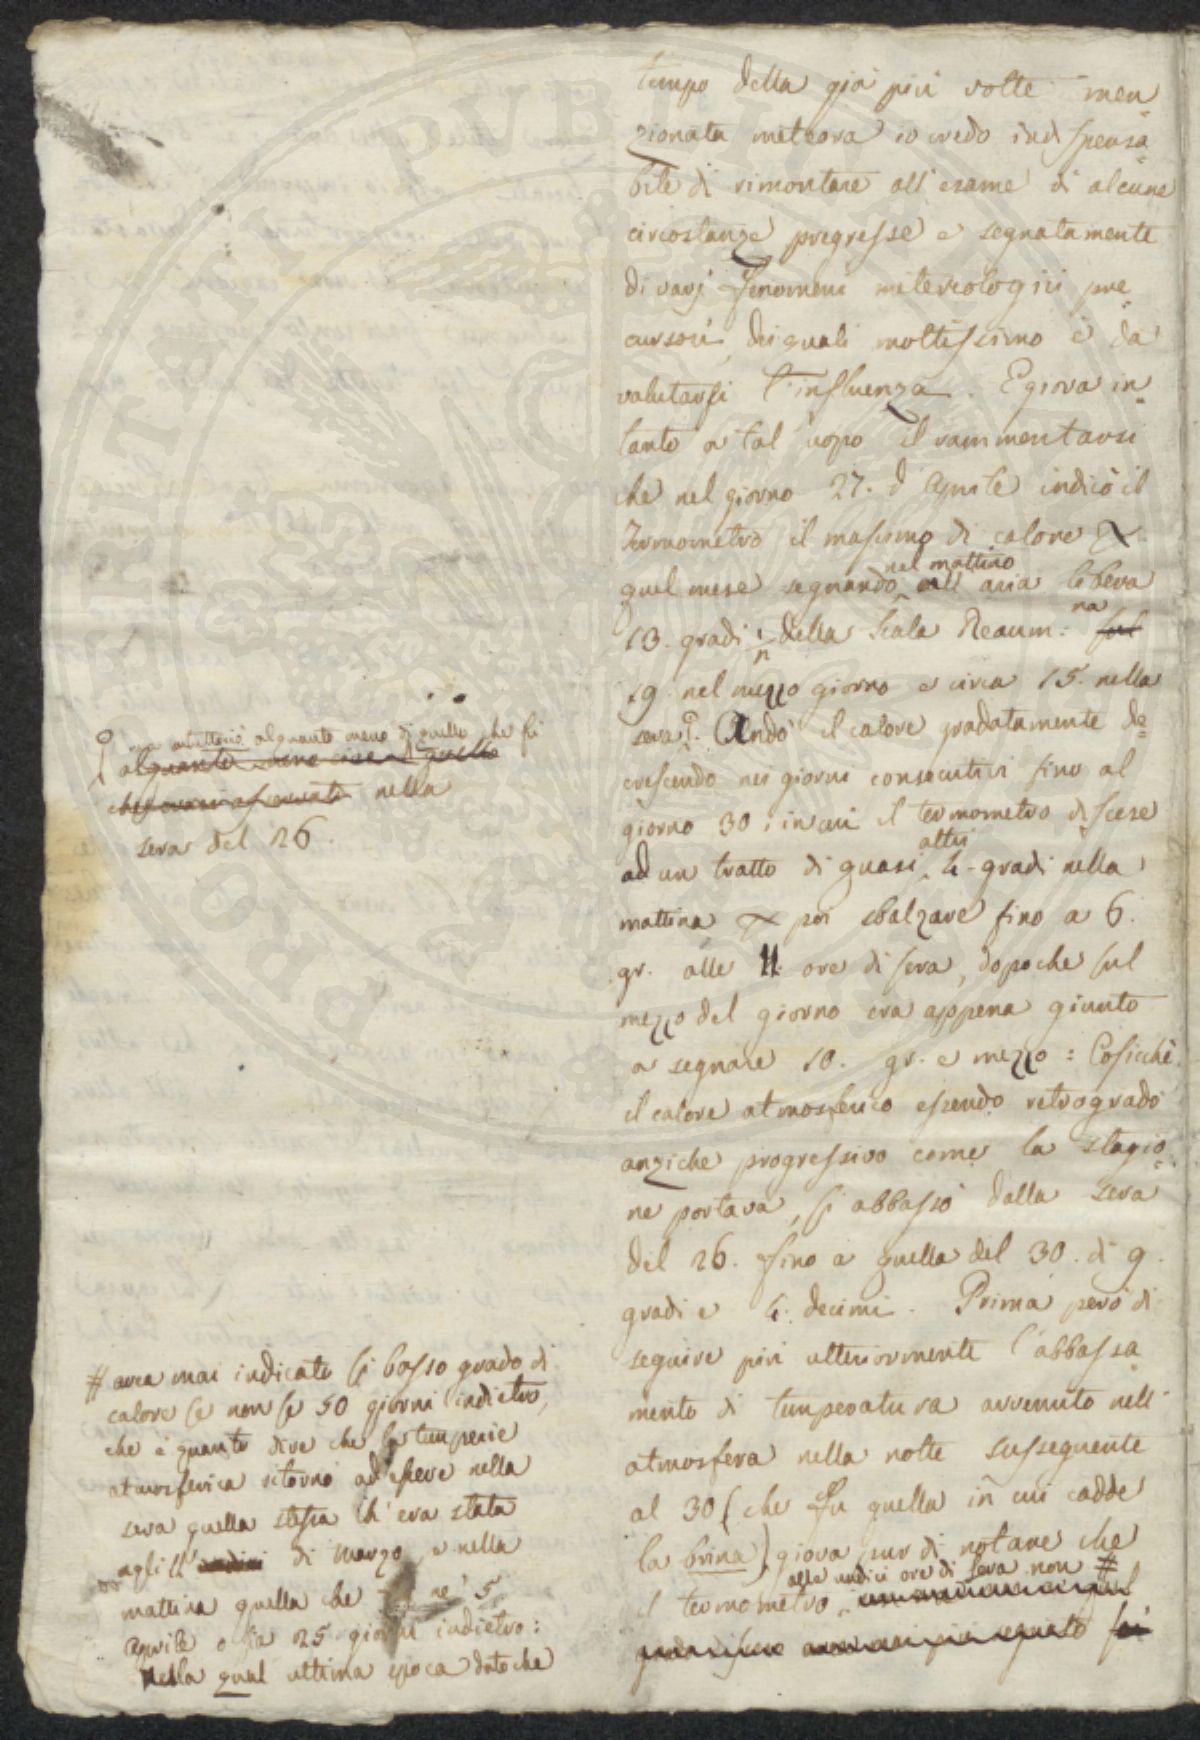 tempo della già più volte men
zionata meteora io credo indispensa
bile di rimontare all'esame di alcune
circostanze pregresse e segnatamente
di varj fenomeni metereologici pre
cursori, dei quali moltissimo è da
valutarsi l'influenza. E giova in
tanto a tal uopo il rammentarsi
che nel giorno 27. d'Aprile indicò il
Termometro il massimo di calore
quel mese segnando nel mattino all'aria libera
13. gradi della Scala Reaum:
19. nel mezzo giorno e circa 15. nella
sera. Andò il calore gradatamente de
crescendo nei giorni consecutivi fino al
giorno 30; in cui il termometro discese
ad un tratto di quasi altri 4. gradi nella
mattina per sbalzare fino a 6.
gr. alle 11. ore di sera, dopoche sul
mezzo del giorno era appena giunto
a segnare 10. gr. e mezzo: Cosicchè
il calore atmosferico essendo retrogrado
anziche progressivo come la stagio
ne portava, si abbassò dalla sera
del 26. fino a quella del 30. di 9.
gradi e 4. decimi. Prima però di
seguire più ulteriormente l'abbassa
mento di temperatura avvenuto nell'
atmosfera nella notte susseguente
al 30 (che fu quella in cui cadde
la brina) giova pur di notare che
il termometro alle undici ore di sera non #
ma tuttavia alquanto meno di quello che fu
alquanto meno di quello
nella
sera del 26.
# avea mai indicato sì basso grado di
calore se non se 50 giorni indietro,
che è quanto dire che la temperie
atmosferica ritornò ad essere nella
sera quella stessa ch'era stata
agli 11 di Marzo, e nella
mattina quella che ne' 5.
Aprile o sia 25 giorni indietro:
Nella qual ultima epoca dato che
PUBLICAE